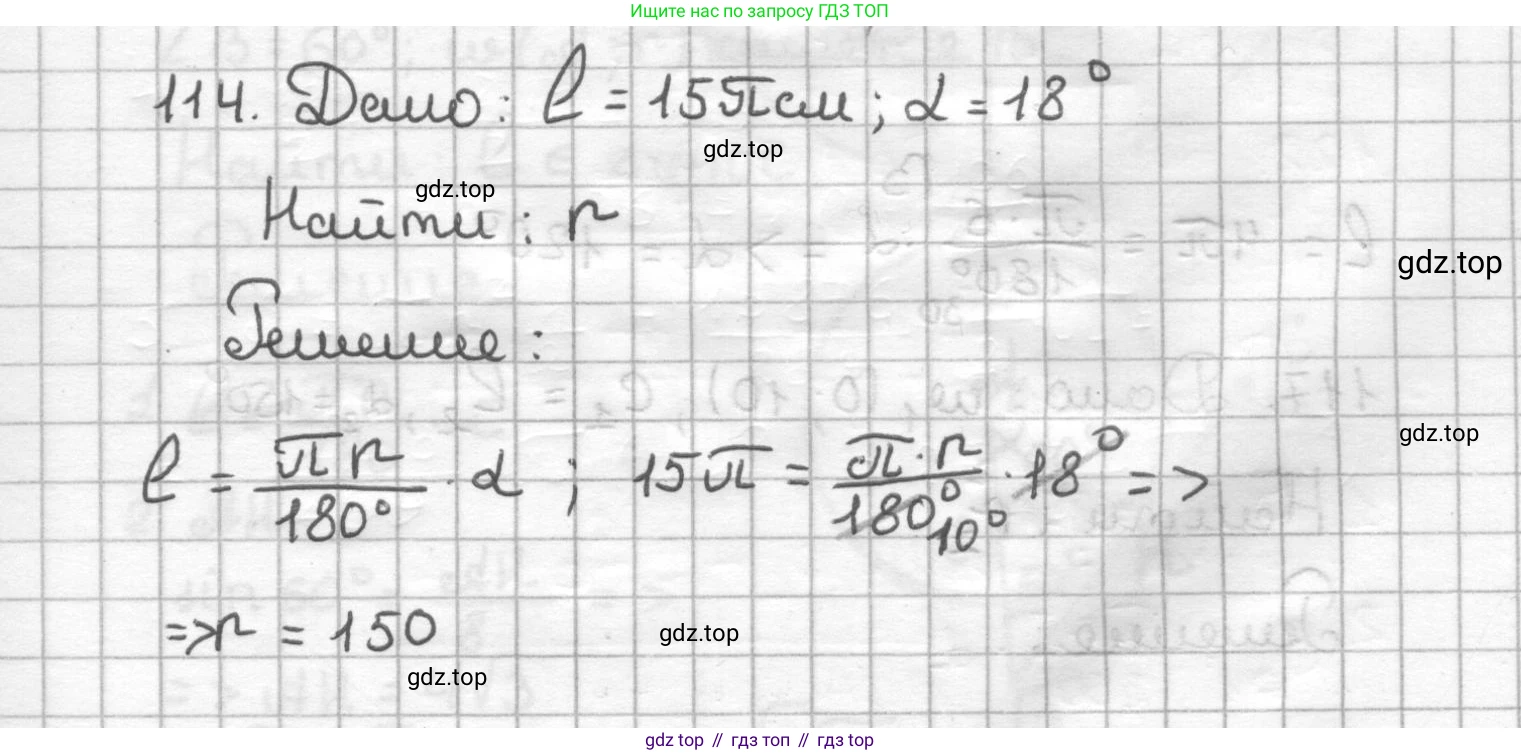 Ищите нас по запросу ГДЗ ТОП
114. Дано: l = 15π см; α = 18°
gdz.top
gdz.top
Найти: r
gdz.top
Решение:
gdz.top
l = πr/180° · α ; 15π = π·r/180° 10° · 18° =>
=> r = 150
gdz.top
gdz.top
gdz top // гдз топ // гдз top